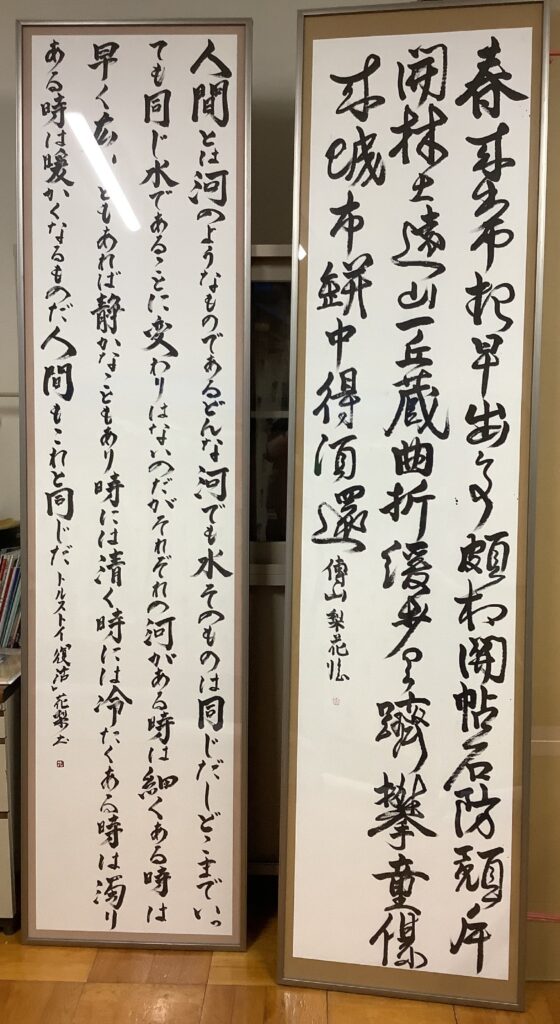 春来常起早幽事頗相関帖石防頽岸
開林出遠山一丘蔵曲折緩歩有躋攀童僕
来城市缾中得酒還 傅山 梨花臨
人間とは河のようなものであるどんな河でも水そのものは同じだしどこまでいっ
ても同じ水であることに変わりはないのだがそれぞれの河がある時は細くある時は
早く広いこともあれば静かなこともあり時には清く時には冷たくある時は濁り
ある時は暖かくなるものだ人間もこれと同じだ トルストイ「復活」花梨書